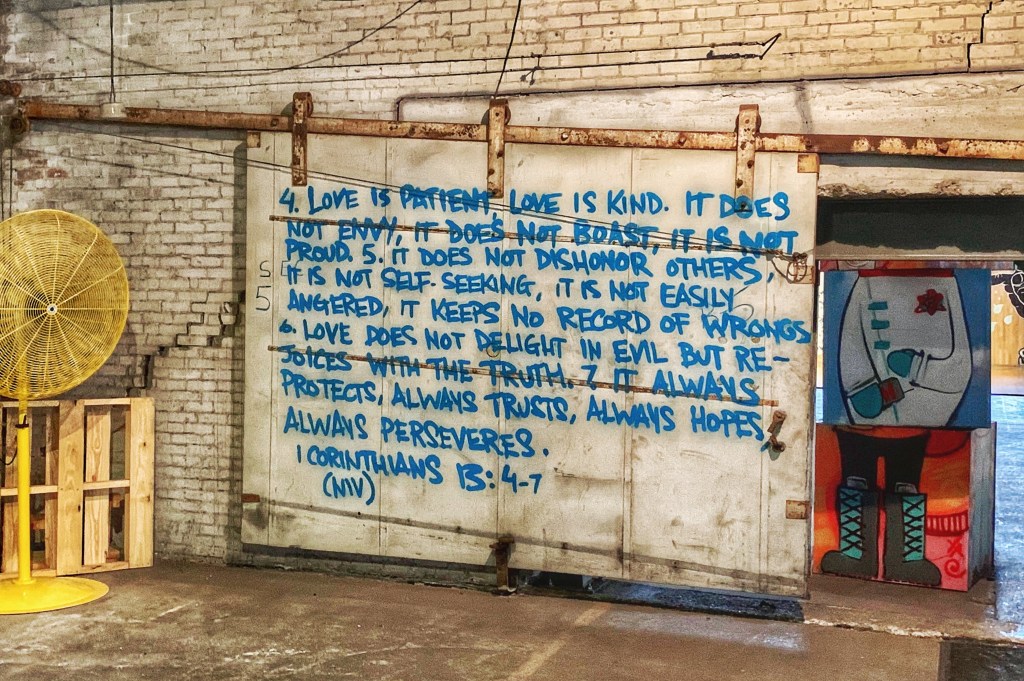 4. LOVE IS PATIENT, LOVE IS KIND. IT DOES
NOT ENVY, IT DOES NOT BOAST, IT IS NOT
PROUD. 5. IT DOES NOT DISHONOR OTHERS,
IT IS NOT SELF-SEEKING, IT IS NOT EASILY
ANGERED, IT KEEPS NO RECORD OF WRONGS
6. LOVE DOES NOT DELIGHT IN EVIL BUT RE-
JOICES WITH THE TRUTH. 7. IT ALWAYS
PROTECTS, ALWAYS TRUSTS, ALWAYS HOPES,
ALWAYS PERSEVERES.
1 CORINTHIANS 13:4-7
(NIV)